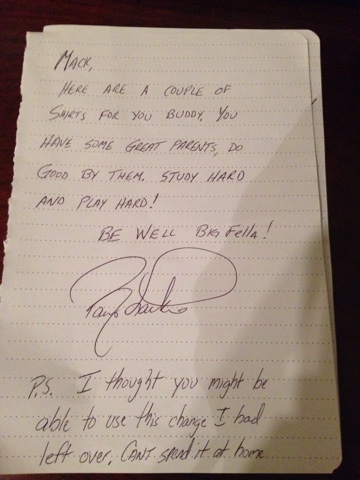 MACK,
HERE ARE A COUPLE OF
SHIRTS FOR YOU BUDDY. YOU
HAVE SOME GREAT PARENTS, DO
GOOD BY THEM. STUDY HARD
AND PLAY HARD!
BE WELL BIG FELLA!
P.S. I thought you might be
able to use this change I had
left over, CANT spend it at home